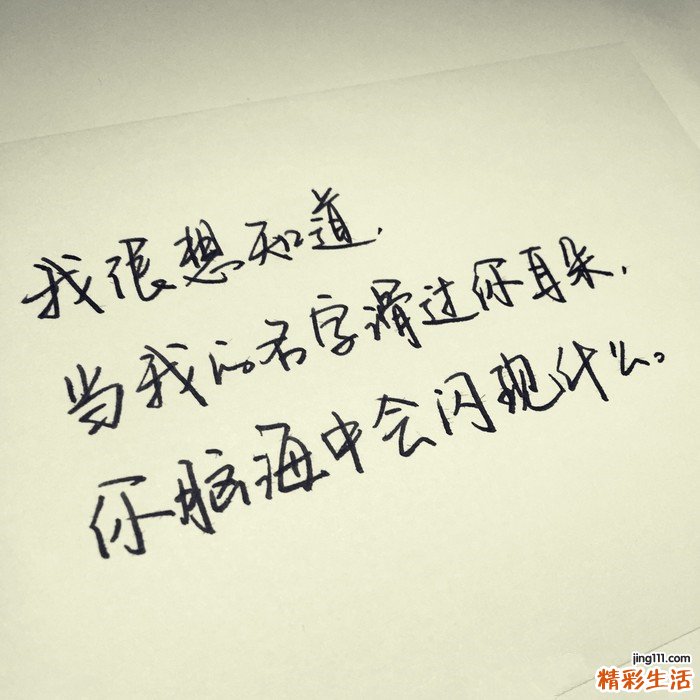 我很想知道，
当我的名字滑过你耳朵，
你脑海中会闪现什么。
jing111.com
精彩生活